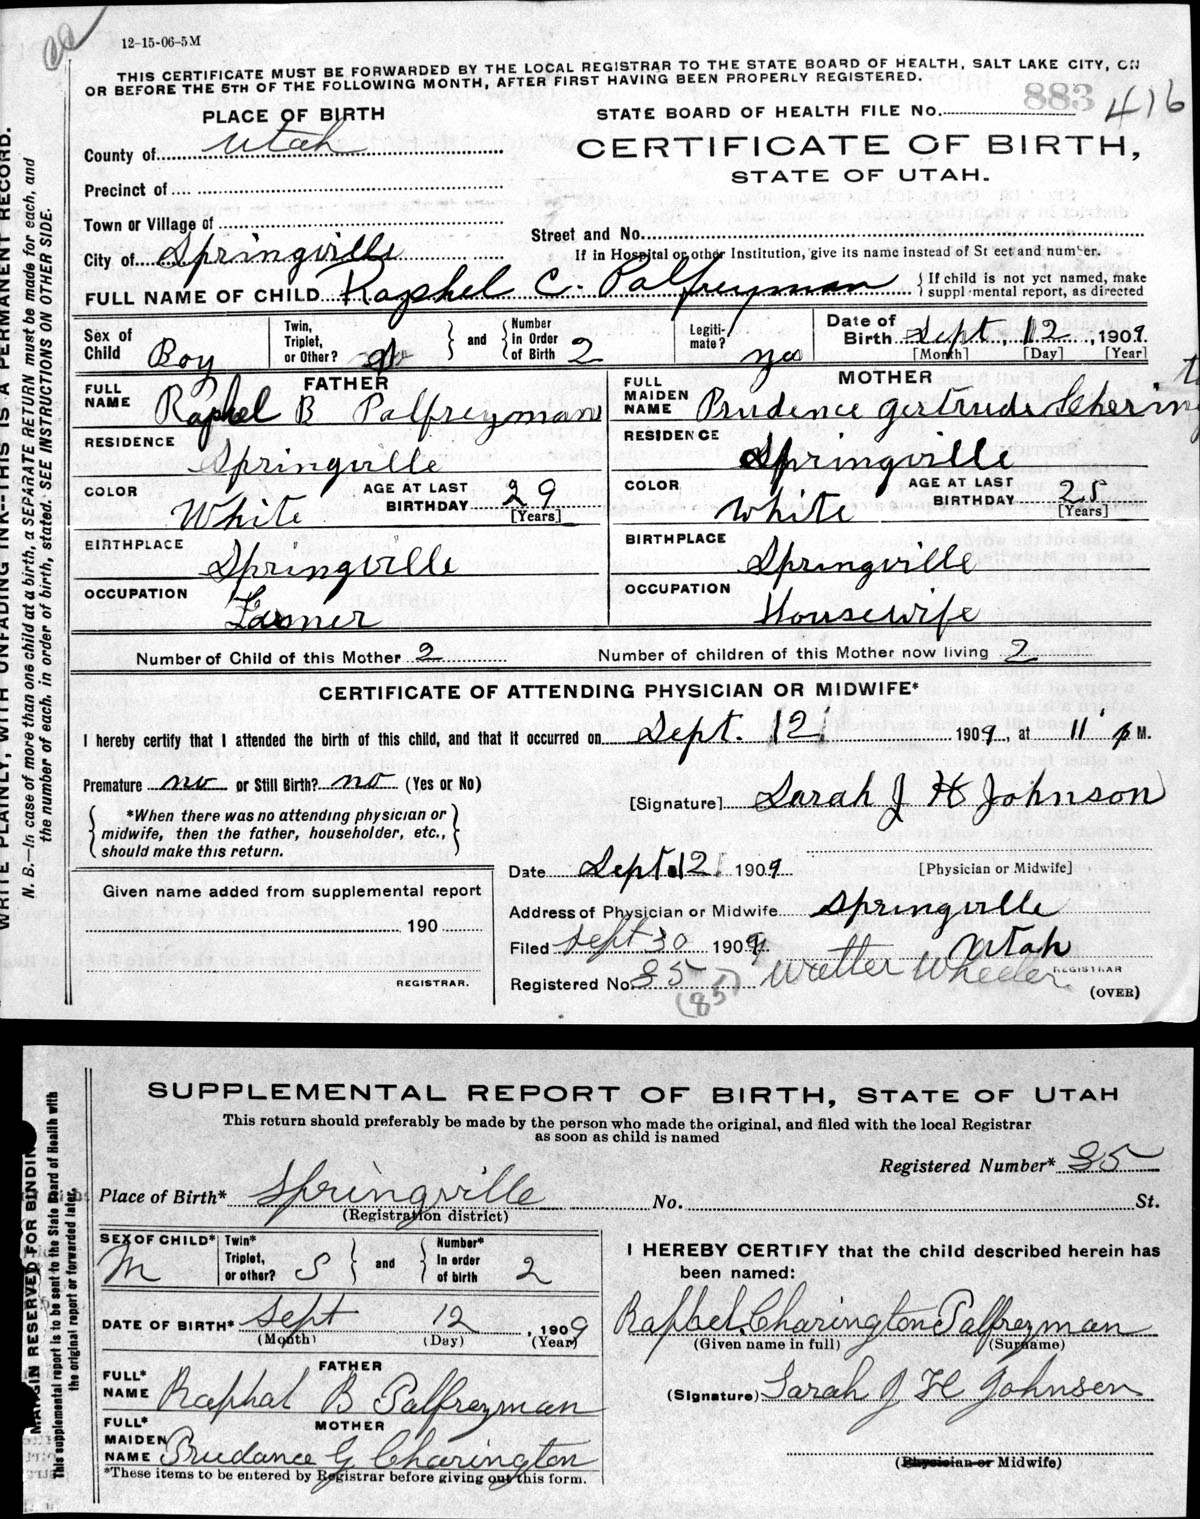 12-15-06-5M
THIS CERTIFICATE MUST BE FORWARDED BY THE LOCAL REGISTRAR TO THE STATE BOARD OF HEALTH, SALT LAKE CITY, ON
OR BEFORE THE 5TH OF THE FOLLOWING MONTH, AFTER FIRST HAVING BEEN PROPERLY REGISTERED.
WRITE PLAINLY, WITH UNFADING INK--THIS IS A PERMANENT RECORD.
N. B.—In case of more than one child at a birth, a SEPARATE RETURN must be made for each, and
the number of each, in order of birth, stated. SEE INSTRUCTIONS ON OTHER SIDE.
PLACE OF BIRTH
STATE BOARD OF HEALTH FILE No. 883 416
County of Utah
CERTIFICATE OF BIRTH,
STATE OF UTAH.
Precinct of
Town or Village of
Street and No.
City of Springville
If in Hospital or other Institution, give its name instead of St eet and number.
FULL NAME OF CHILD Raphel C. Palfreyman
If child is not yet named, make
suppl mental report, as directed
Sex of Child Boy
Twin, Triplet, or Other?
and Number In Order of Birth 2
Legiti-mate? yes
Date of Birth Sept 12, 1909
[Month] [Day] [Year]
FATHER
FULL NAME Raphel B Palfreyman
RESIDENCE Springville
COLOR White
AGE AT LAST BIRTHDAY 29
[Years]
BIRTHPLACE Springville
OCCUPATION Farmer
MOTHER
FULL MAIDEN NAME Prudence Gertrude
RESIDENCE Springville
COLOR White
AGE AT LAST BIRTHDAY 25
[Years]
BIRTHPLACE Springville
OCCUPATION Housewife
Number of Child of this Mother 2
Number of children of this Mother now living 2
CERTIFICATE OF ATTENDING PHYSICIAN OR MIDWIFE*
I hereby certify that I attended the birth of this child, and that it occurred on Sept. 12 1909, at 11 M.
Premature no or Still Birth? no (Yes or No)
[Signature] Sarah J H Johnson
*When there was no attending physician or
midwife, then the father, householder, etc.,
should make this return.
Date Sept 12 1909
[Physician or Midwife]
Given name added from supplemental report
190
REGISTRAR.
Address of Physician or Midwife Springville
Utah
Filed Sept 30 1909
Registered No. 85 (85) Walter Wheeler
REGISTRAR
(OVER)
MARGIN RESERVED FOR BINDIN
This supplemental report is to be sent to the State Board of Health with
the original report or forwarded later.
SUPPLEMENTAL REPORT OF BIRTH, STATE OF UTAH
This return should preferably be made by the person who made the original, and filed with the local Registrar
as soon as child is named
Registered Number* 85
Place of Birth* Springville No. St.
(Registration district)
SEX OF CHILD* M
Twin* Triplet, or other? S
and Number* In order of birth 2
DATE OF BIRTH* Sept 12, 1909
(Month) (Day) (Year)
FATHER
FULL* NAME Raphal B Palfreyman
MOTHER
FULL* MAIDEN NAME Prudance G Charington
*These items to be entered by Registrar before giving out this form.
I HEREBY CERTIFY that the child described herein has
been named:
Raphel Charington Palfreyman
(Given name in full) (Surname)
(Signature) Sarah J H Johnsen
(Physician or Midwife)